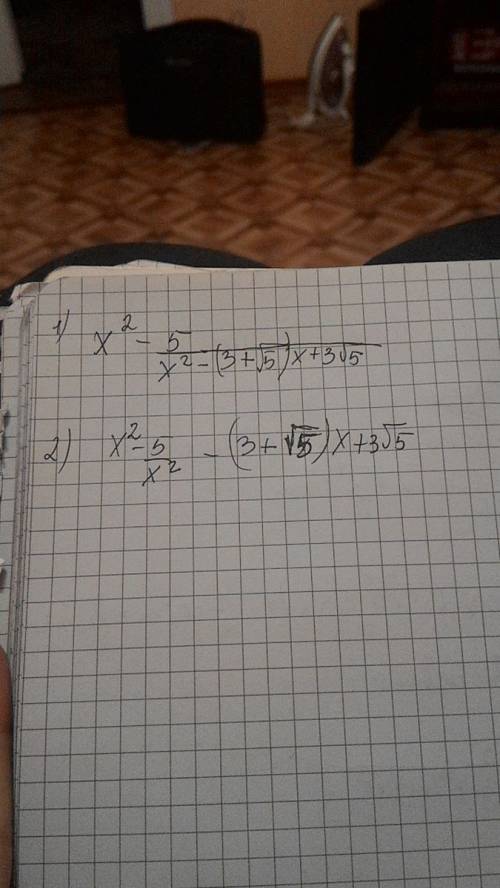 1) x² - 5/(x² - (3 + √5)x + 3√5)
2) x² - 5/x² - (3 + √5)x + 3√5